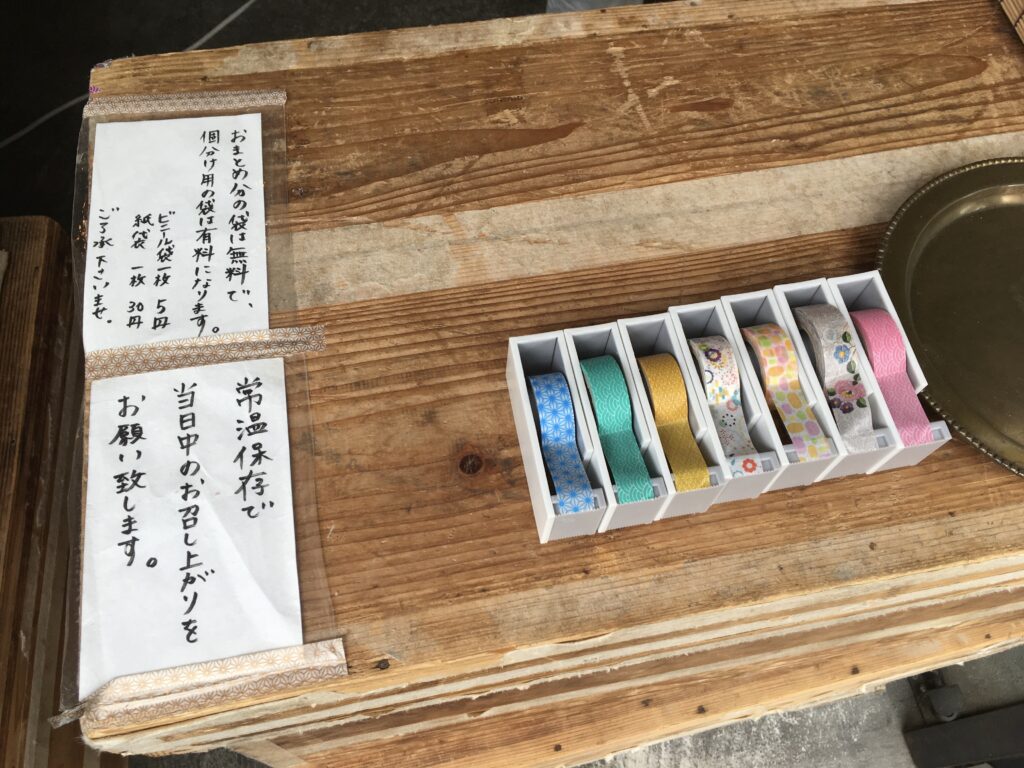 おまとめ分の袋は無料で、
個分け用の袋は有料になります。
ビニール袋一枚 5円
紙袋 一枚 30円
ご了承下さいませ。
常温保存で
当日中のお召し上がりを
お願い致します。